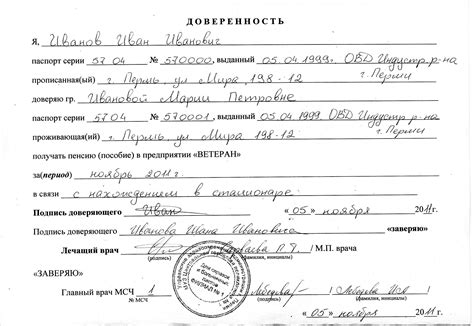 ДОВЕРЕННОСТЬ
Я, Иванов Иван Иванович
паспорт серии 57 04 № 570000, выданный 05.04.1999. ОВД Индустр. р-на
прописанный(ая) г. Пермь, ул Мира 198-12 г. Перми
доверяю гр. Ивановой Марии Петровне
паспорт серии 5704 № 570001, выданный 05.04.1999 ОВД Индустр р-на
проживающая(ий) г. Пермь, ул Мира 198-12 г. Перми
получать пенсию (пособие) в предприятии «ВЕТЕРАН»
за(период) ноябрь 2011 г.
в связи с нахождением в стационаре
Подпись доверяющего Иван «05» ноября 2011г.
Подпись доверяющего Иванова Ивана Ивановича «заверяю»
Лечащий врач М.П. врача
(подпись) (фамилия, инициалы)
«ЗАВЕРЯЮ»
Главный врач МСЧ 1
№ МСЧ (подпись) (фамилия, инициалы)
«05» ноября 2011г.